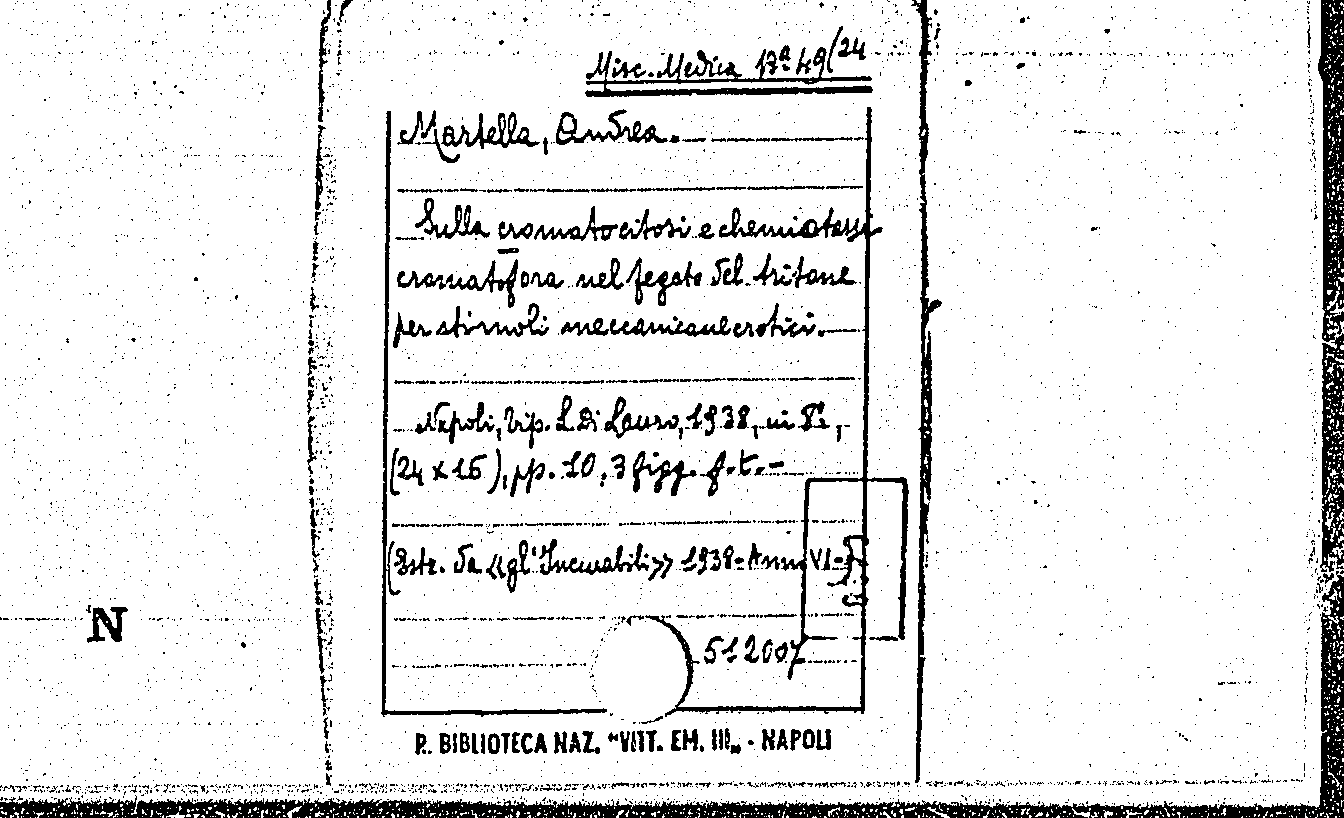 Misc. Medica 17ª 49(24
Martella, Andrea.
Sulla cromatocitosi e chemiotassi
cromatofora nel fegato del tritone
per stimoli meccanici
Napoli, Tip. L. Di Lauro, 1938, in 8º,
(24 x 16), pp. 10, 3 figg. f. t. -
(Estr. da «gl'Incurabili» 1938 - Anno VI -
512007
N
R. BIBLIOTECA NAZ. "VITT. EM. III„ - NAPOLI